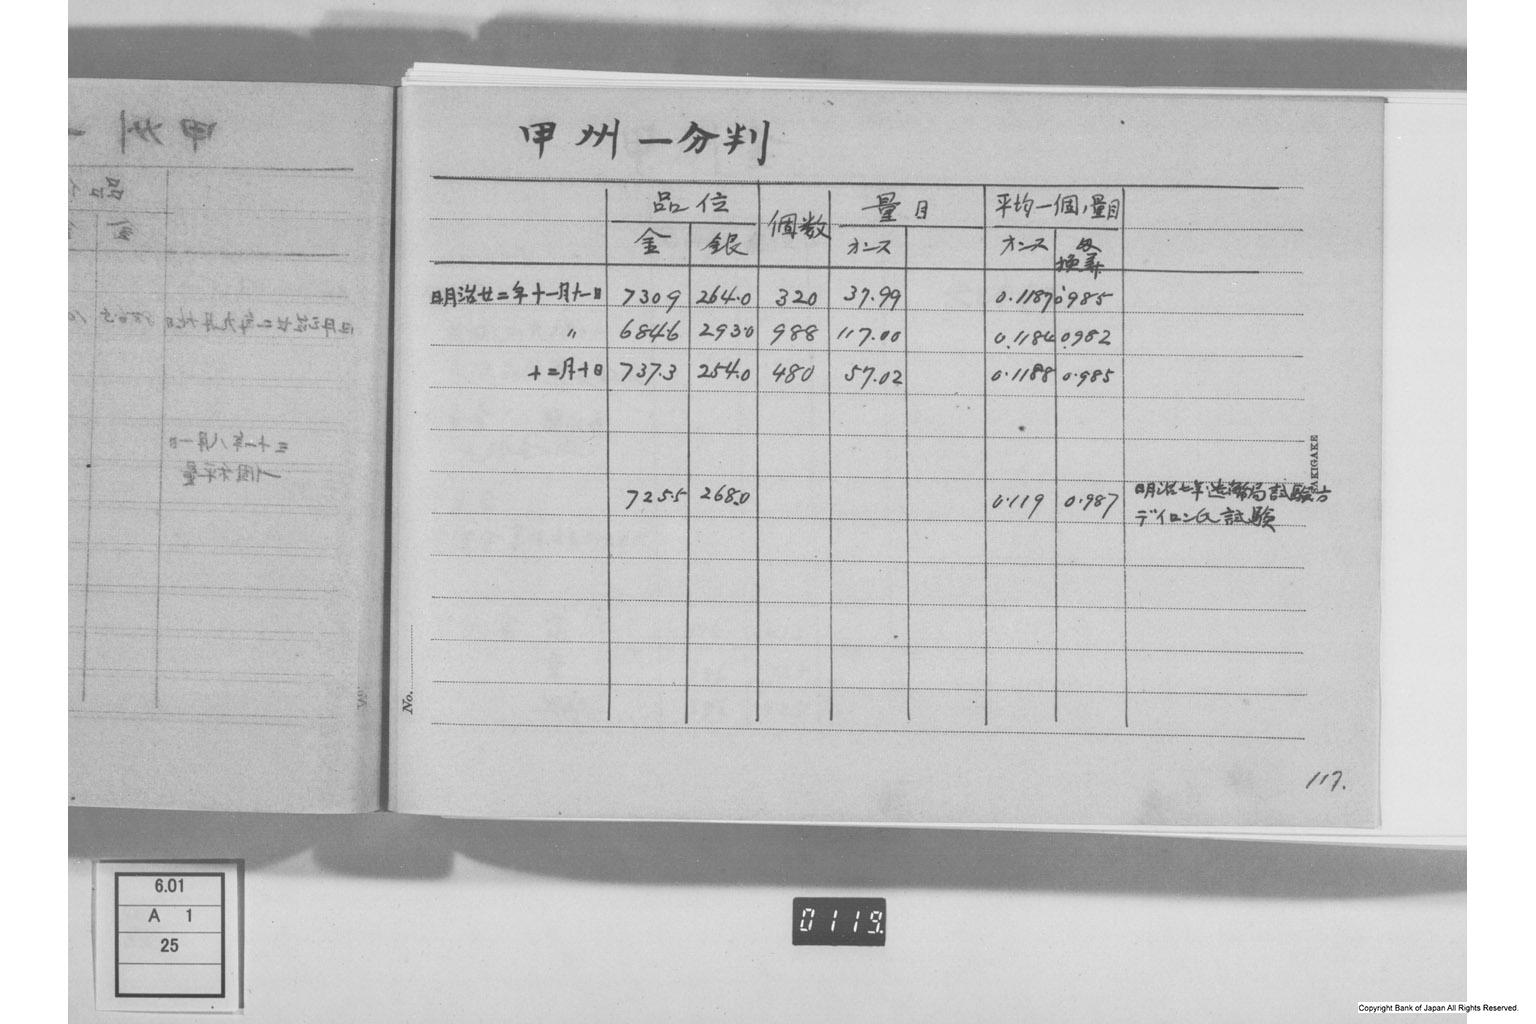 甲州一分判
品位 個数 量目 平均一個ノ量目
金 銀 オンス オンス 匁換算
明治廿二年十一月十一日 730.9 264.0 320 37.99 0.1187 0.985
〃 684.6 293.0 988 117.00 0.1184 0.982
十二月十日 737.3 254.0 480 57.02 0.1188 0.985
725.5 268.0 0.119 0.987 明治七年造幣局試験方
デイロン氏試験
No.
117.
6.01
A 1
25
0119.
Copyright Bank of Japan All Rights Reserved.